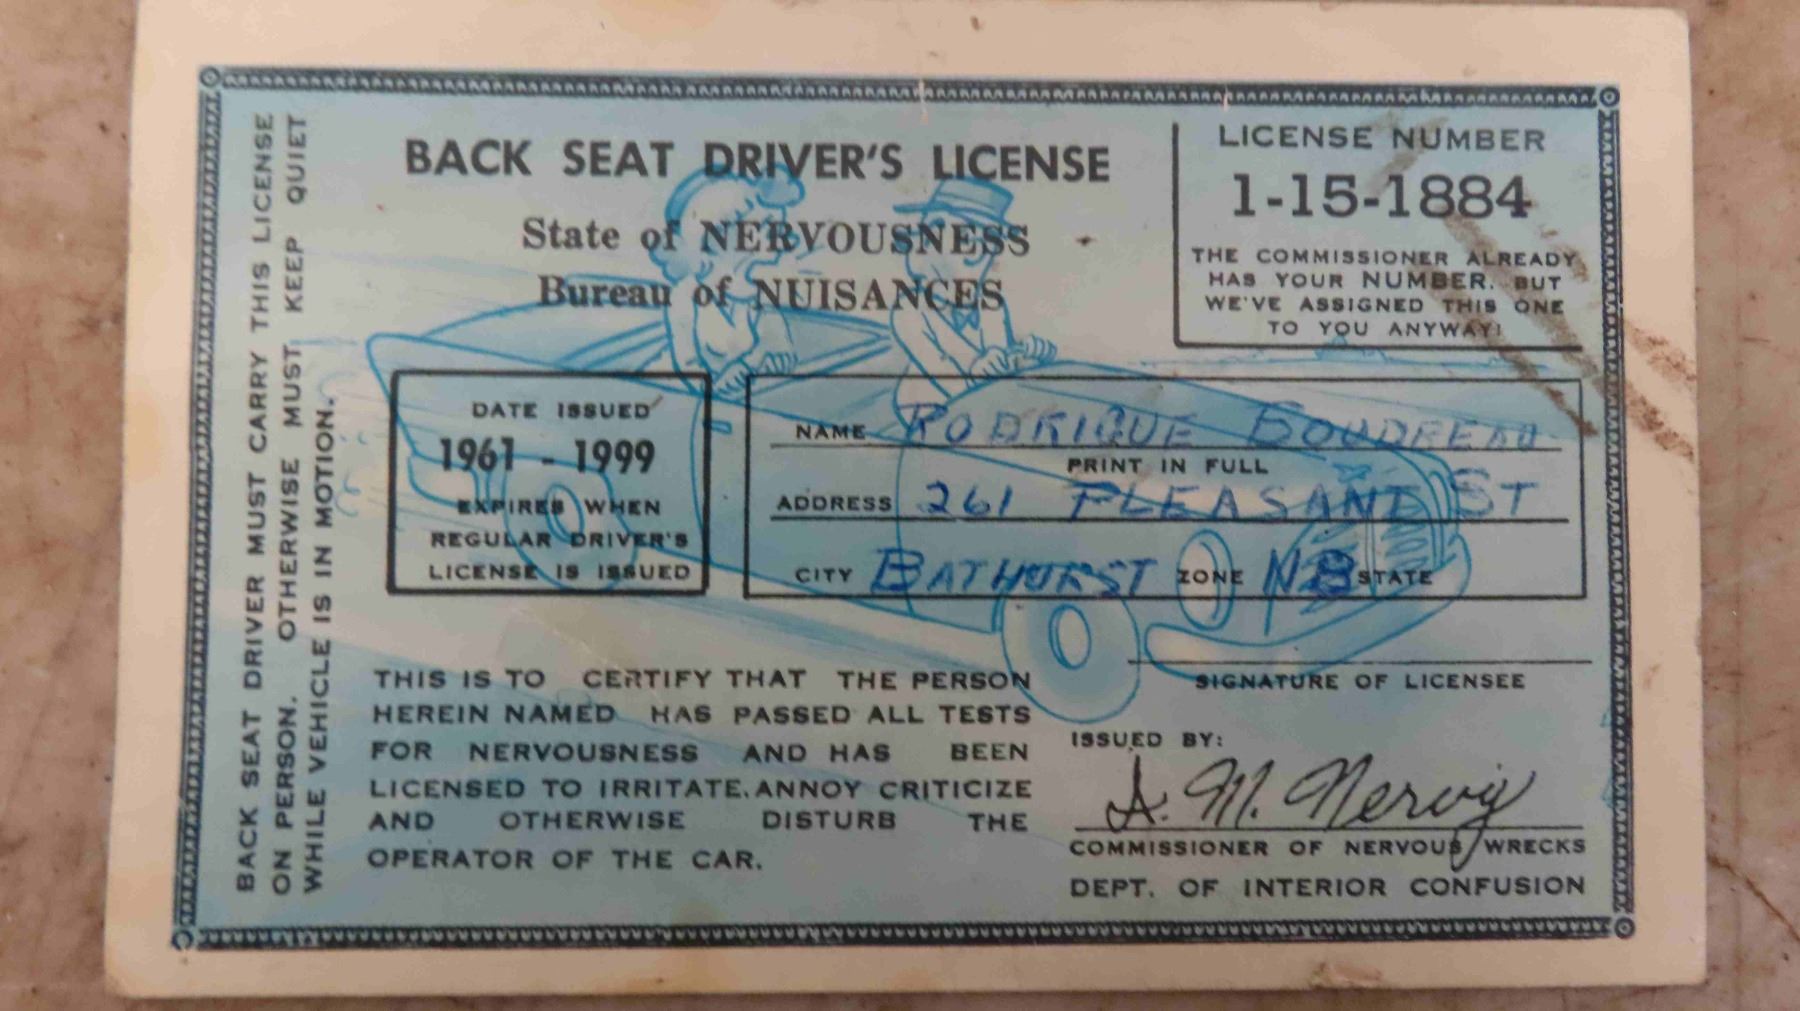 BACK SEAT DRIVER MUST CARRY THIS LICENSE
ON PERSON. OTHERWISE MUST KEEP QUIET
WHILE VEHICLE IS IN MOTION.
BACK SEAT DRIVER'S LICENSE
State of NERVOUSNESS
Bureau of NUISANCES
LICENSE NUMBER
1-15-1884
THE COMMISSIONER ALREADY
HAS YOUR NUMBER. BUT
WE'VE ASSIGNED THIS ONE
TO YOU ANYWAY!
DATE ISSUED
1961 - 1999
EXPIRES WHEN
REGULAR DRIVER'S
LICENSE IS ISSUED
NAME RODRIGUE BOUDREAU
PRINT IN FULL
ADDRESS 261 PLEASANT ST
CITY BATHURST ZONE NB STATE
SIGNATURE OF LICENSEE
THIS IS TO CERTIFY THAT THE PERSON
HEREIN NAMED HAS PASSED ALL TESTS
FOR NERVOUSNESS AND HAS BEEN
LICENSED TO IRRITATE, ANNOY CRITICIZE
AND OTHERWISE DISTURB THE
OPERATOR OF THE CAR.
ISSUED BY:
A. M. Nervy
COMMISSIONER OF NERVOUS WRECKS
DEPT. OF INTERIOR CONFUSION